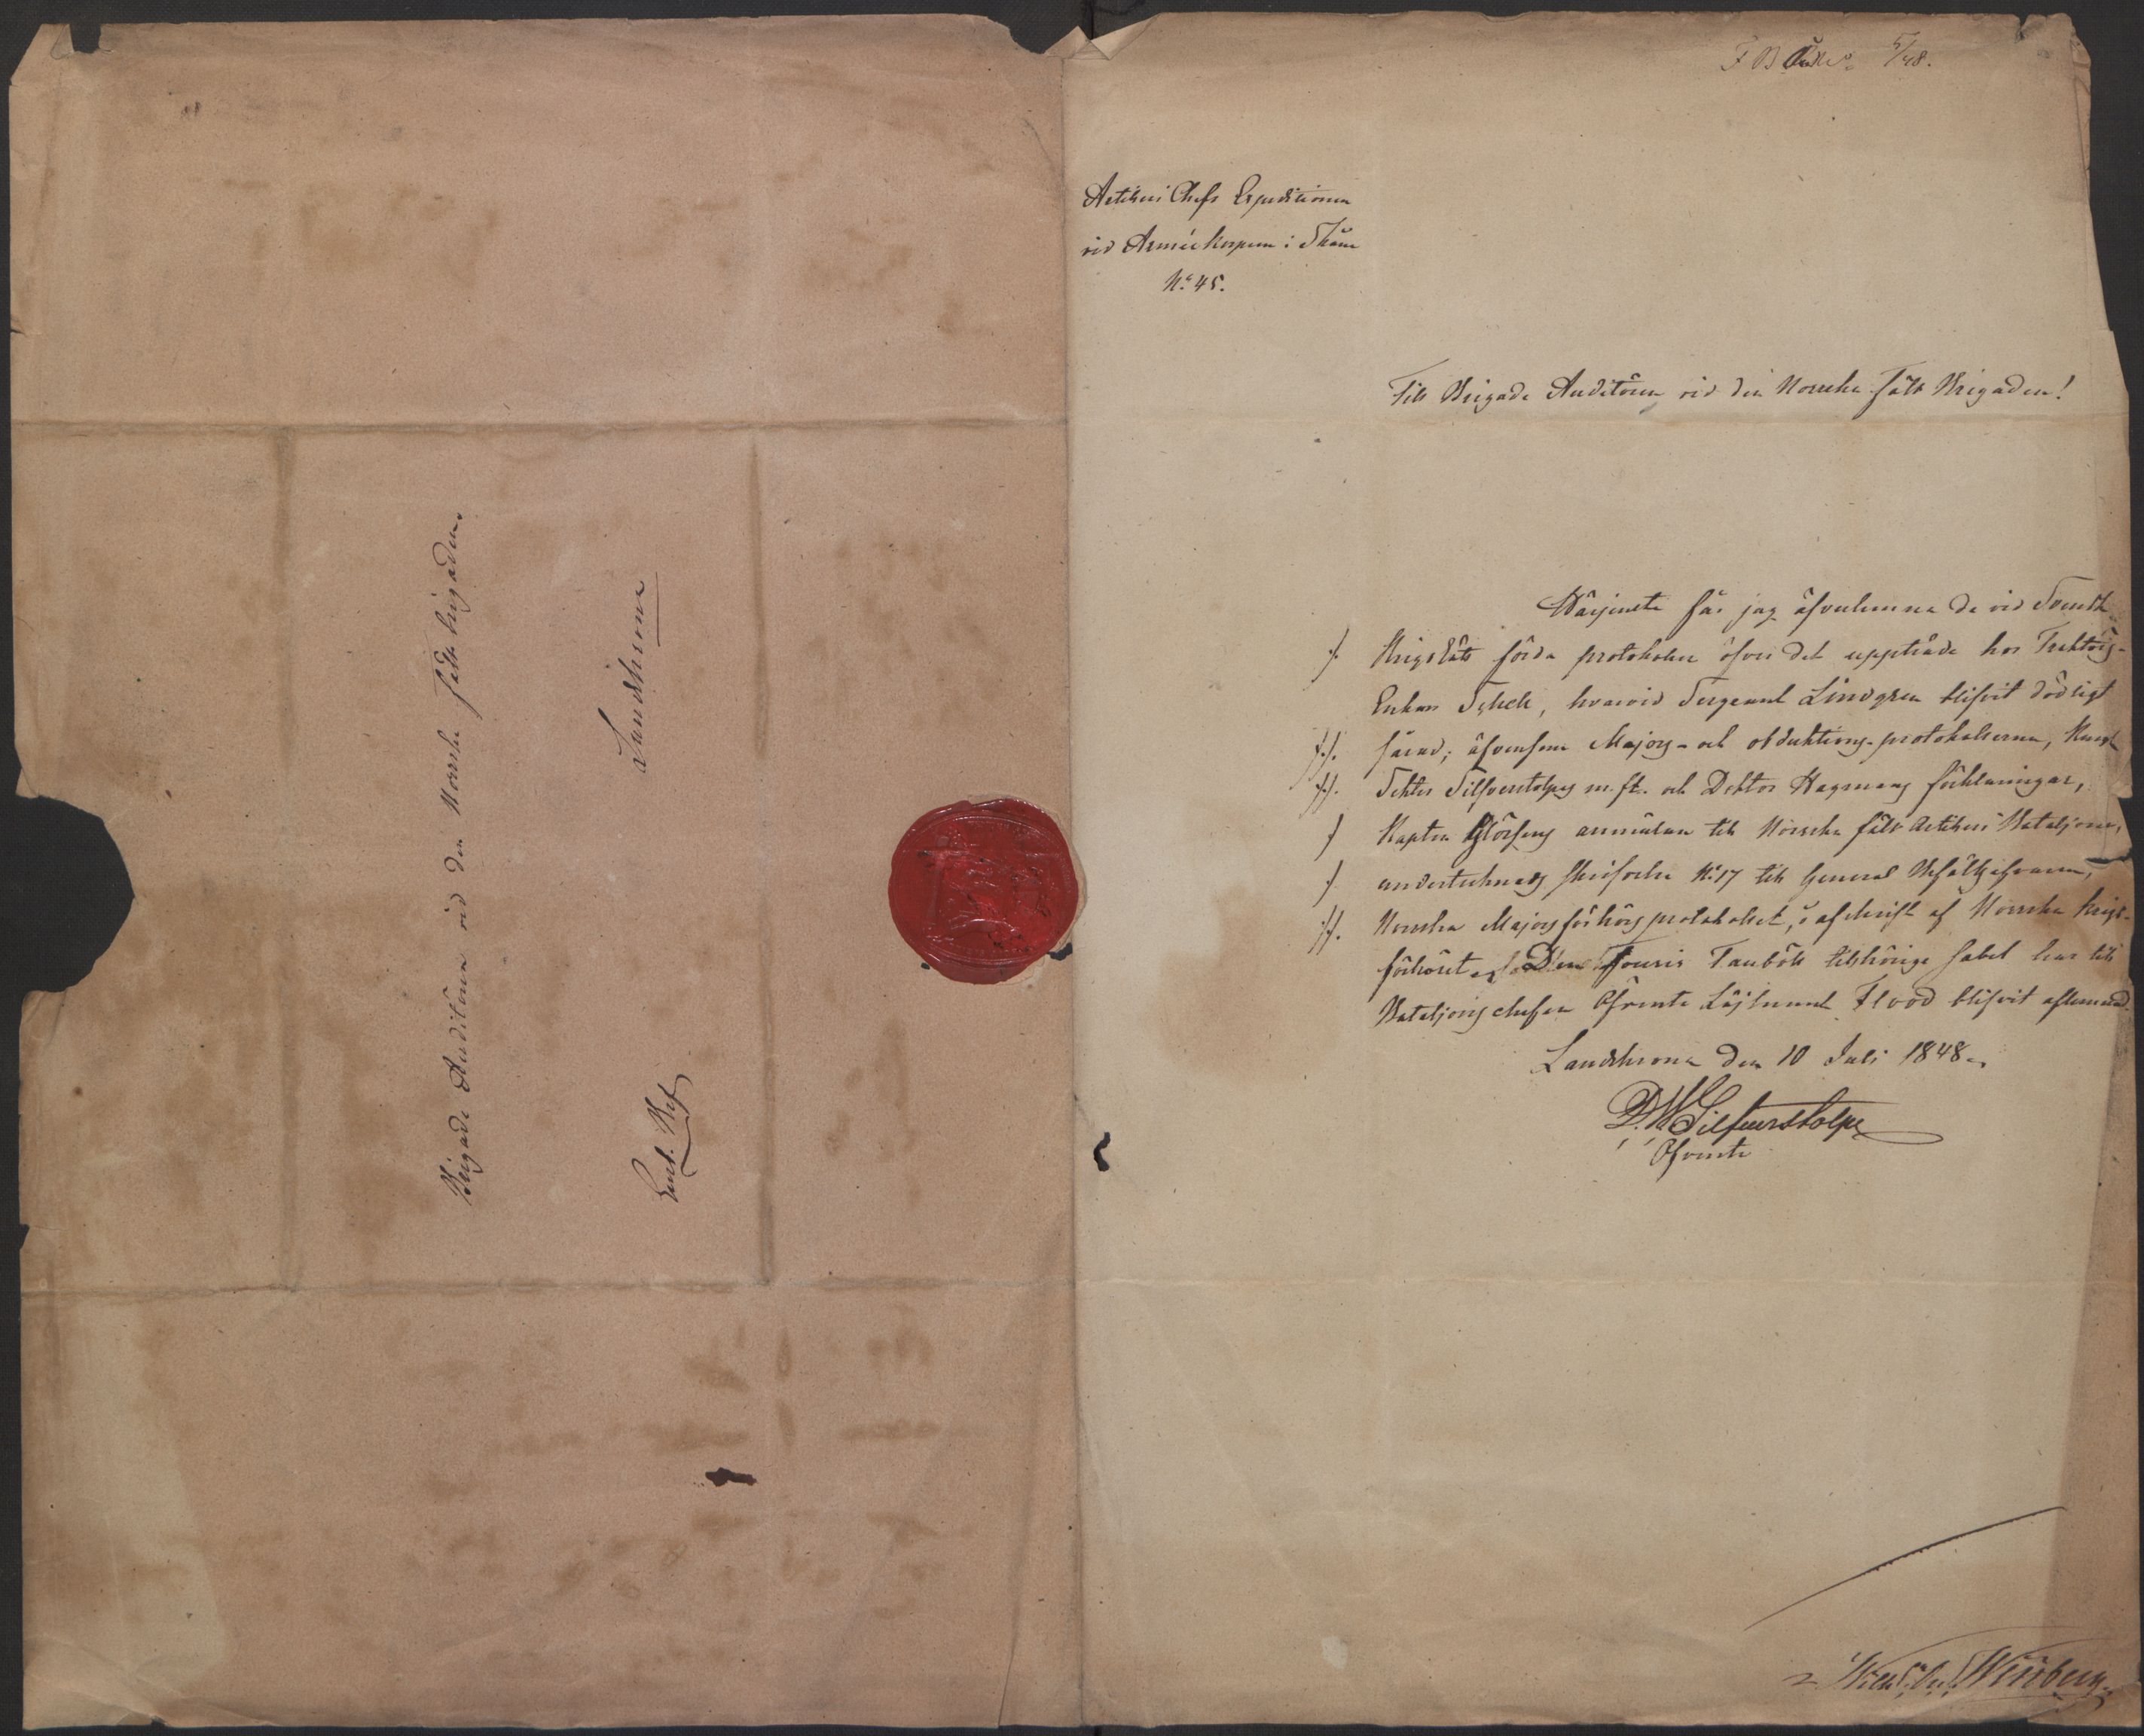 Brigade Auditören vid den Norrska fält brigaden.
Landskrona
F B 5/48.
Artilleri Chefs Expeditionen
vid Armée Korpsen i Skåne
No. 45.
Till Brigade Auditören vid den Norrska fält Brigaden!
Härjemte får jag öfverlemna de vid Svensk
Krigsrätt förda protokoller öfver det uppträde hos Traktörs-
Enkan, hvarvid Sergeant Lindgren blifvit dödligt
sårad; äfvensom Majors- och obduktions-protokollerna,
Silfverstolpes m. fl. och Doktor Hagmans förklaringar,
Kapten anmälan till Norrska fält Artilleri Bataljonen,
undertecknads skrifvelse No. 17 till General Befälhafvaren,
Norrska Majorsförhörs protokollet, i afskrift af Norrska Krigs-
förhöret. Den Fourir tillhörige sabel har till
Bataljons chefen Öfverste Löjtnant Flood blifvit aflemnad.
Landskrona den 10 Juli 1848.
D. W. Silfverstolpe
Öfverste